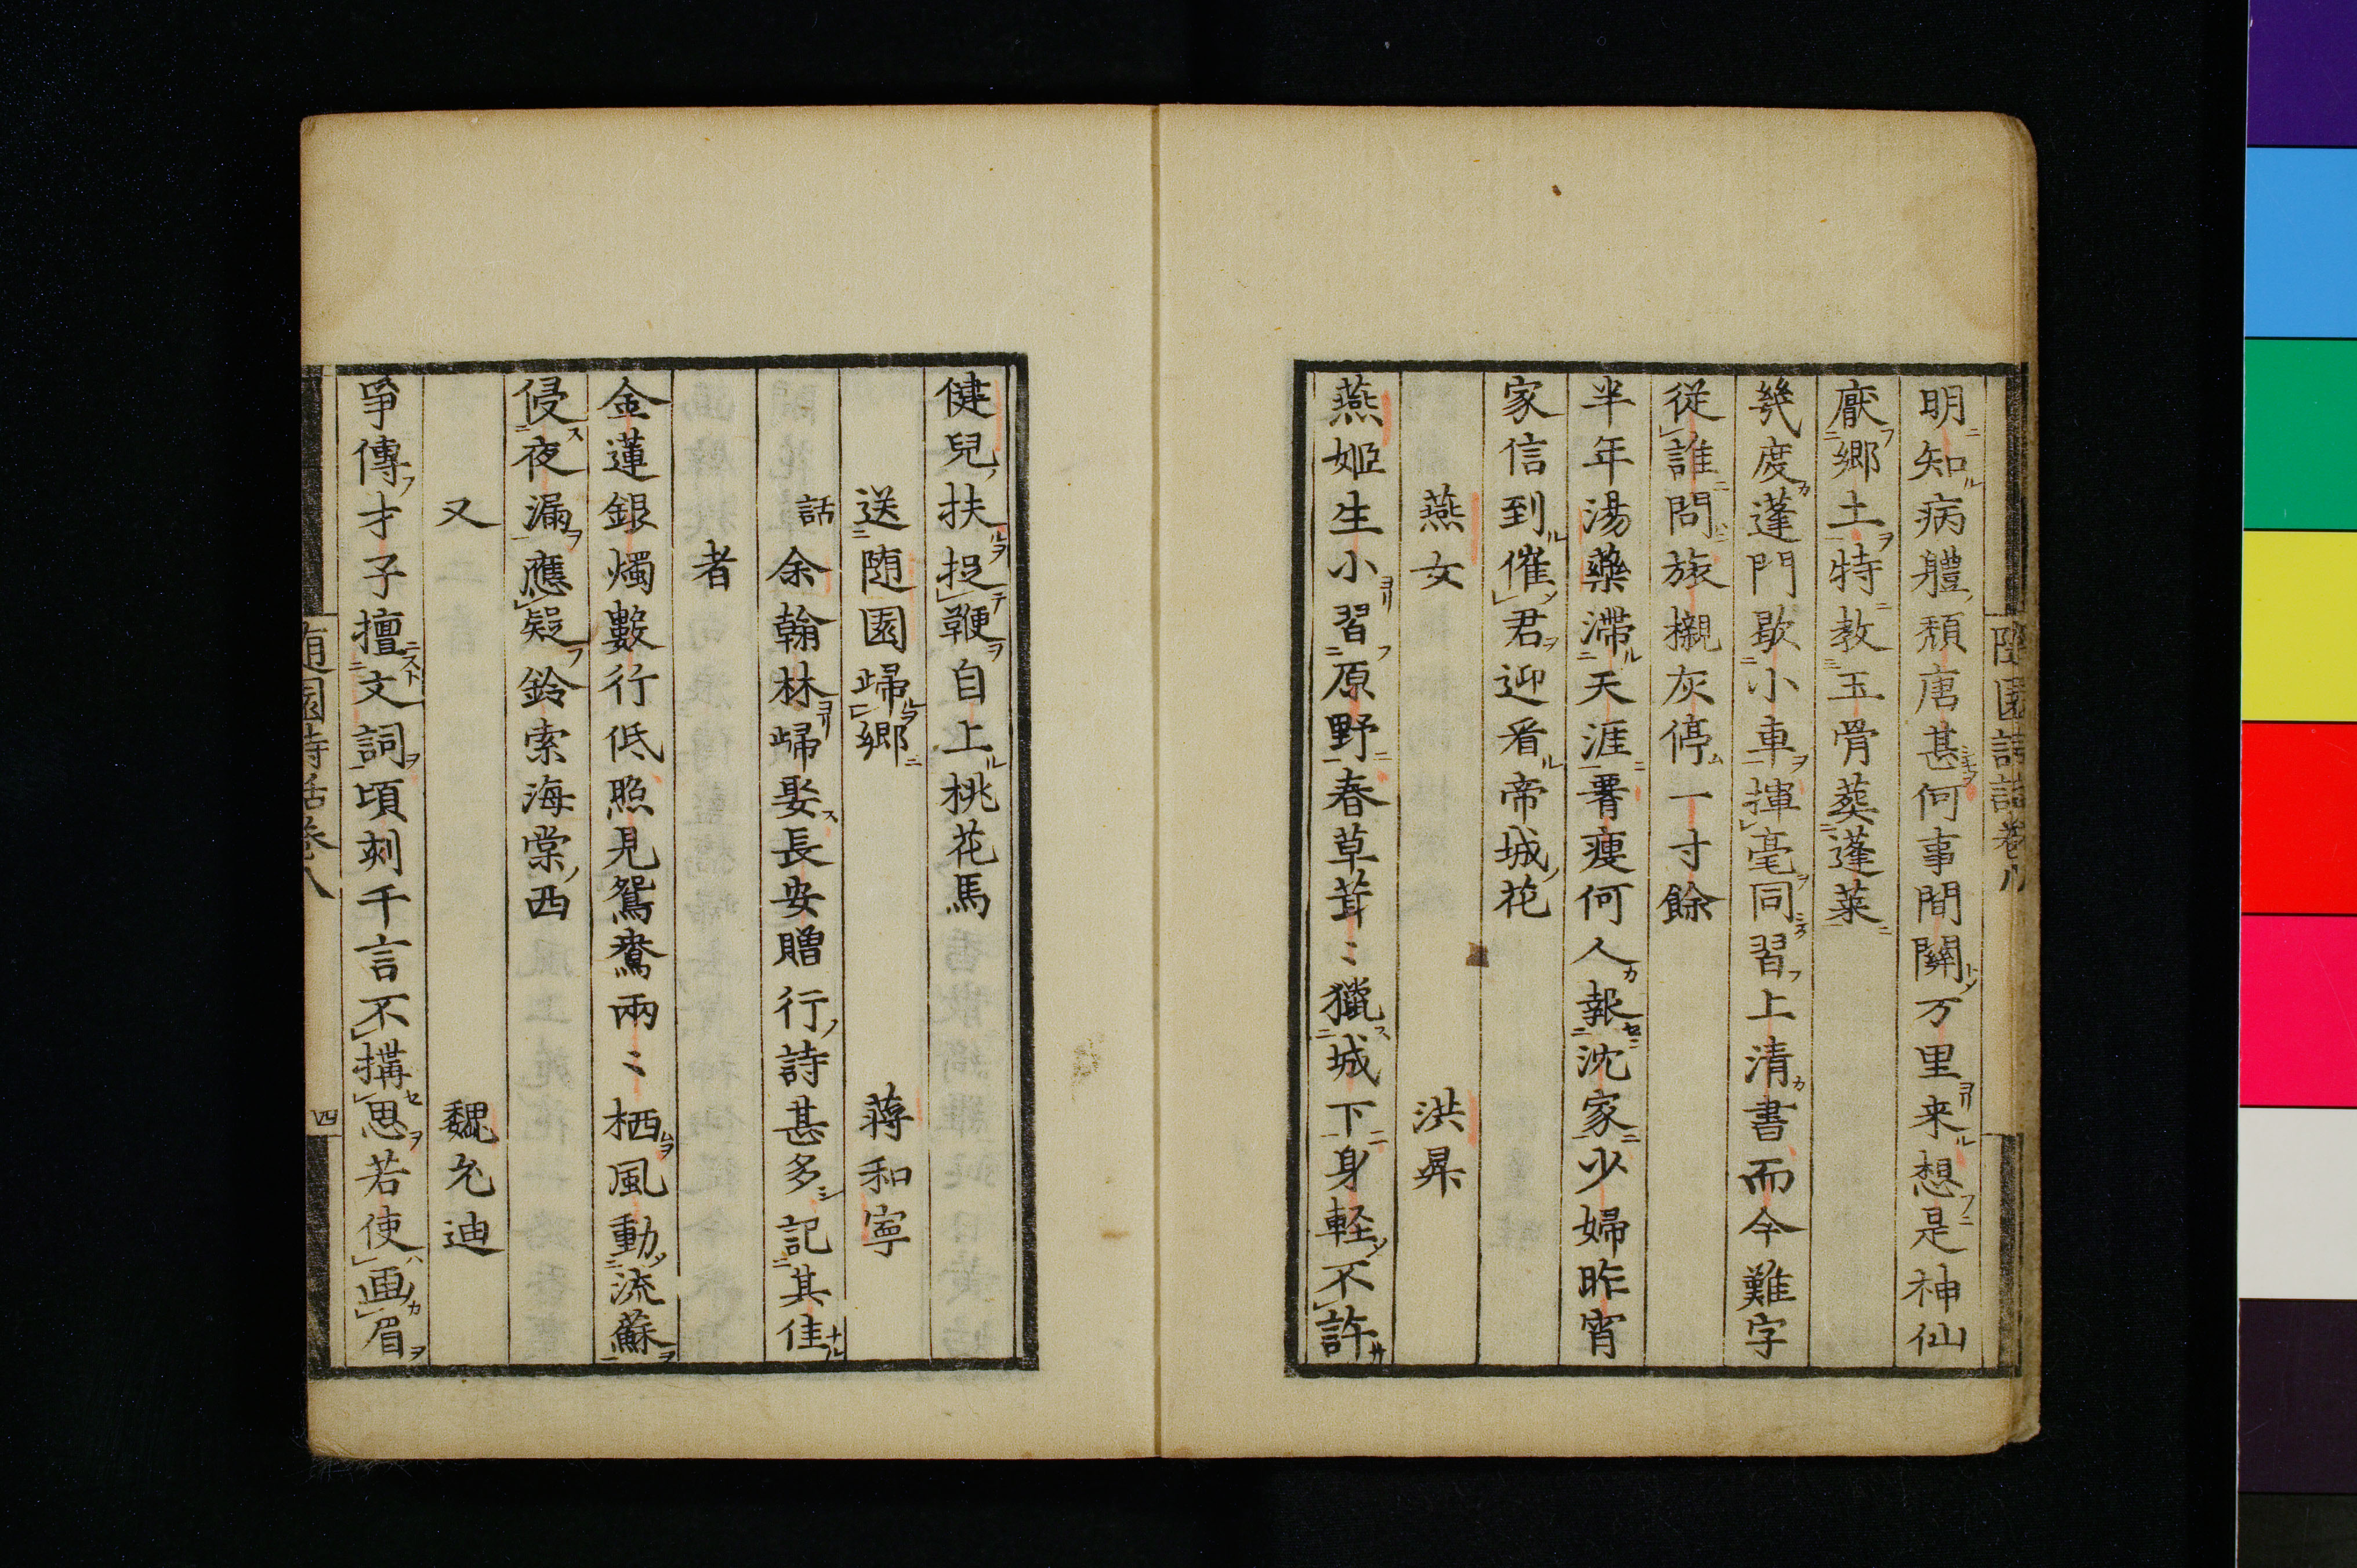 隨園詩話卷八
明知病軆頽唐甚何事間關万里来想是神仙
厭郷土特教玉骨葬蓬莱
幾度蓬門歇小車揮毫同習上清書而今難字
従誰問旅櫬灰停一寸餘
半年湯藥滞天涯署痩何人報沈家少婦昨宵
家信到催君迎看帝城花
燕女　洪昇
燕姫生小習原野春草茸〻獵城下身軽不許
健兒扶捉鞭自上桃花馬
送随園歸郷　蒋和寧
話 余翰林歸娶長安贈行詩甚多記其佳
者
金蓮銀燭數行低照見鴛鴦兩〻栖風動流蘇
侵夜漏應疑鈴索海棠西
又　魏允迪
爭傳才子擅文詞頃刻千言不搆思若使画眉
随園詩話巻八
四